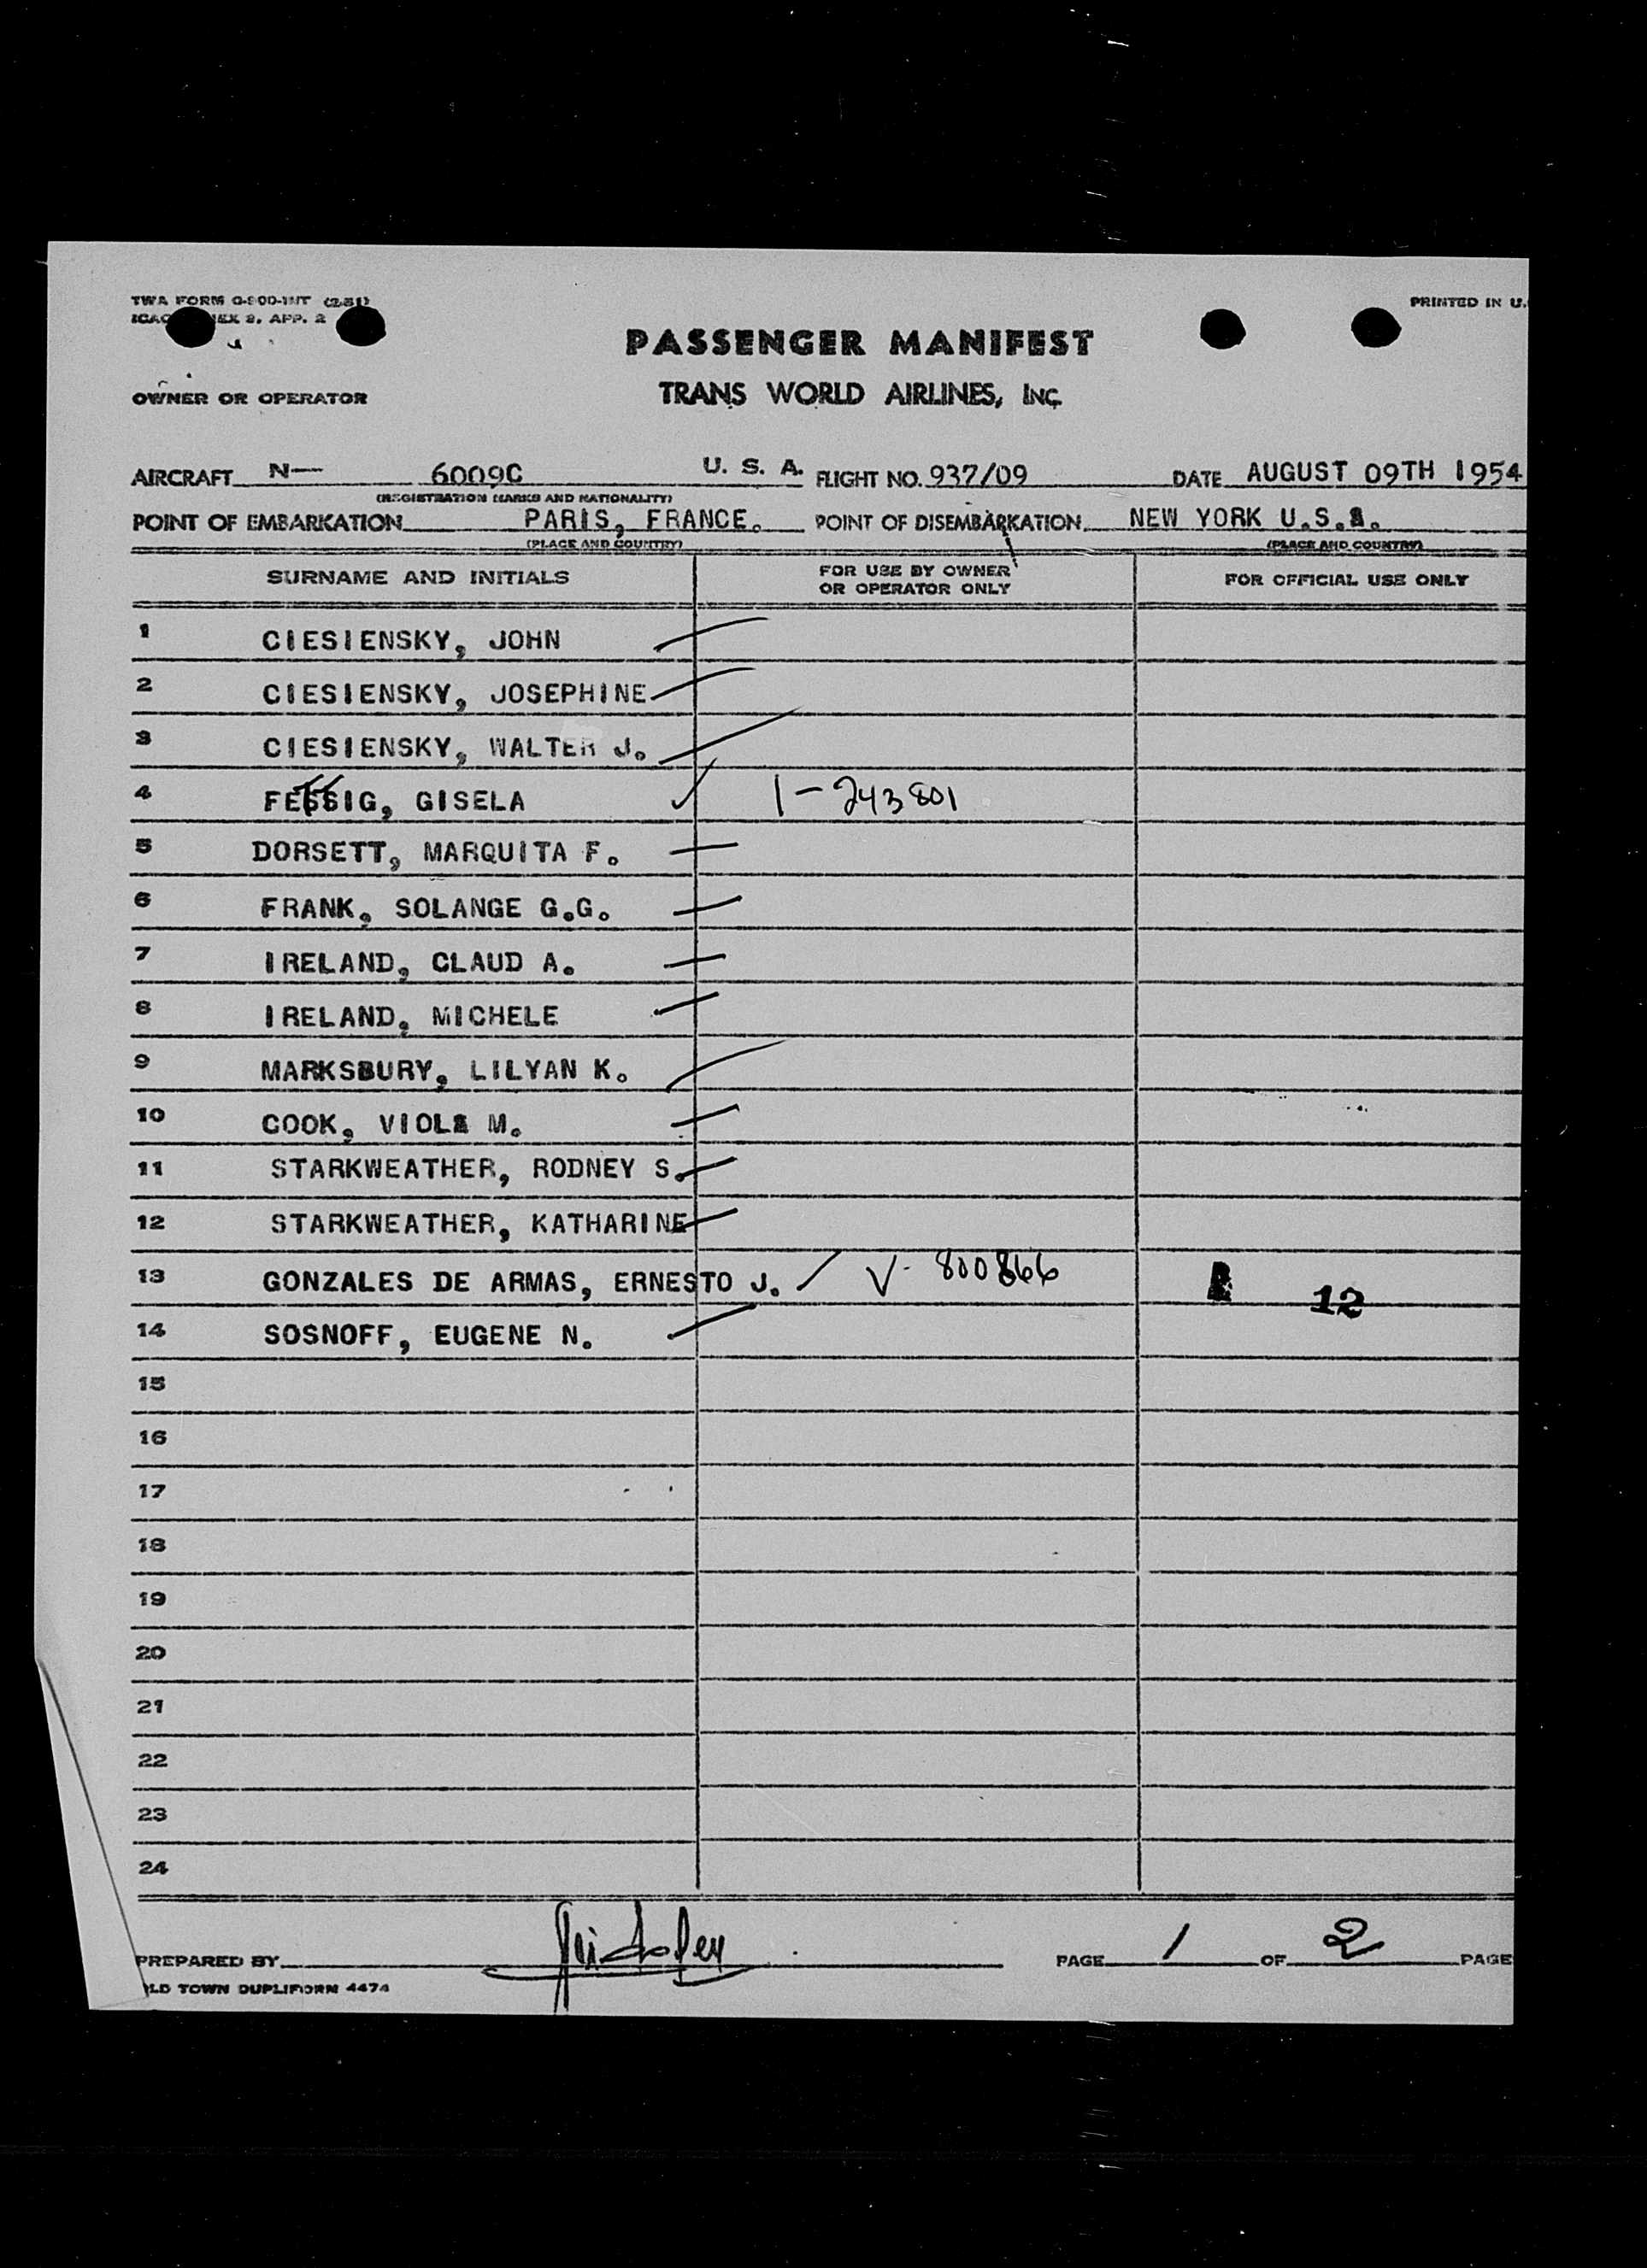 TWA FORM O-900-INT (2-51)
PRINTED IN U.
APP. 2
PASSENGER MANIFEST
OWNER OR OPERATOR
TRANS WORLD AIRLINES, INC.
AIRCRAFT N— 6009C U. S. A. FLIGHT NO. 937/09 DATE AUGUST 09TH 1954
(REGISTRATION MARKS AND NATIONALITY)
POINT OF EMBARKATION PARIS, FRANCE. POINT OF DISEMBARKATION NEW YORK U.S.A.
(PLACE AND COUNTRY) (PLACE AND COUNTRY)
SURNAME AND INITIALS FOR USE BY OWNER OR OPERATOR ONLY FOR OFFICIAL USE ONLY
1 CIESIENSKY, JOHN
2 CIESIENSKY, JOSEPHINE
3 CIESIENSKY, WALTER J.
4 FESSIG, GISELA 1-243801
5 DORSETT, MARQUITA F.
6 FRANK, SOLANGE G.G.
7 IRELAND, CLAUD A.
8 IRELAND, MICHELE
9 MARKSBURY, LILYAN K.
10 COOK, VIOLA M.
11 STARKWEATHER, RODNEY S.
12 STARKWEATHER, KATHARINE
13 GONZALES DE ARMAS, ERNESTO J. V- 800866 12
14 SOSNOFF, EUGENE N.
15
16
17
18
19
20
21
22
23
24
PREPARED BY PAGE 1 OF 2 PAGE
LD TOWN DUPLIFORM 4474